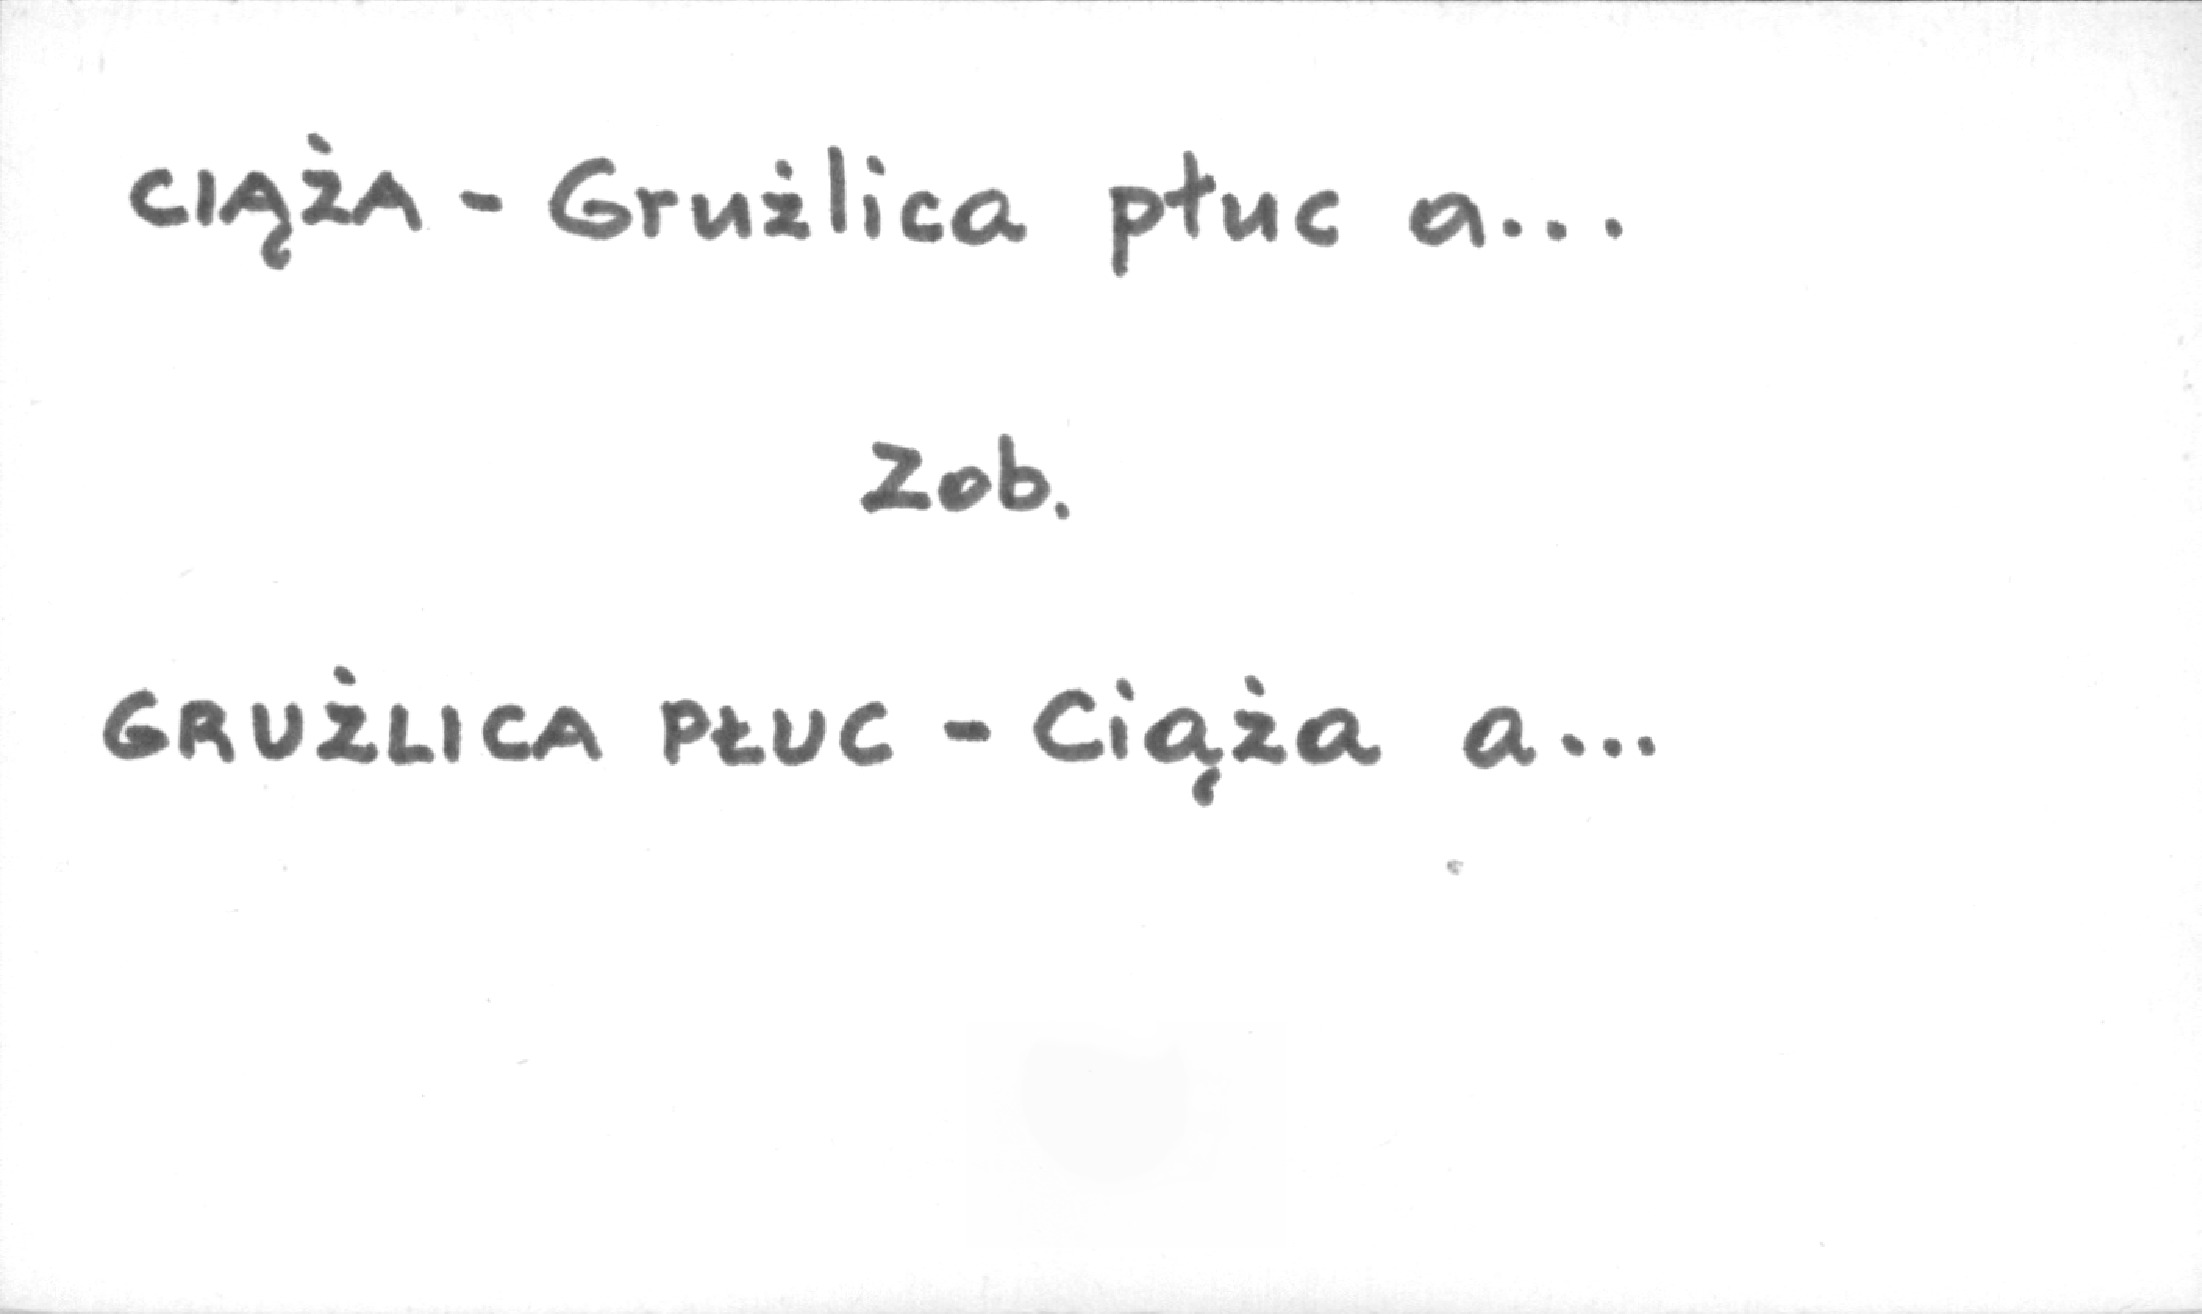 CIĄŻA - Grużlica płuc a...
Zob.
GRUŻLICA PŁUC - Ciąża a...